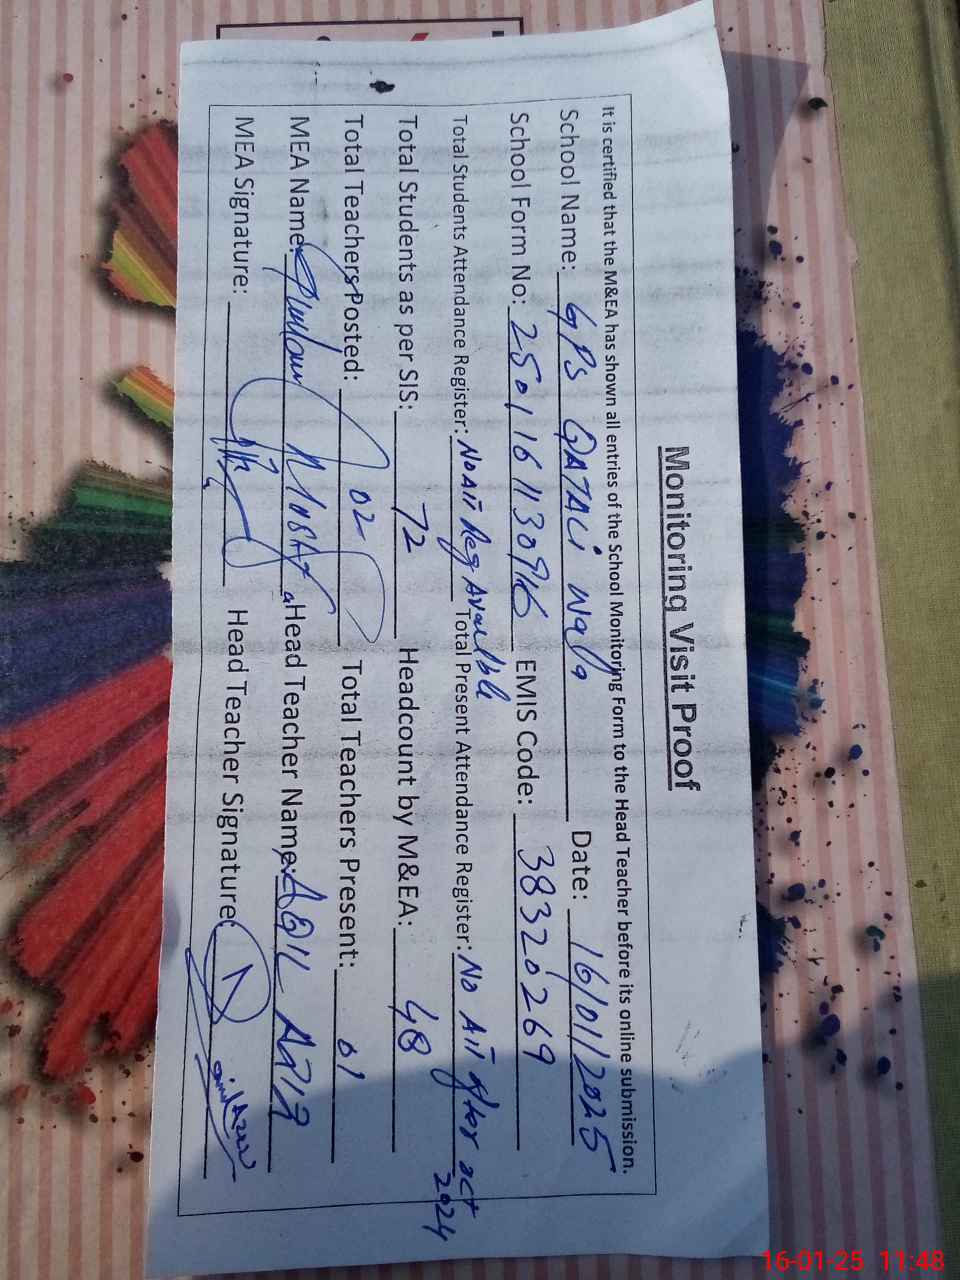 Monitoring Visit Proof
It is certified that the M&EA has shown all entries of the School Monitoring Form to the Head Teacher before its online submission.
School Name: GPS QATALi Wala Date: 16/01/2025
School Form No: 250116113096 EMIS Code: 38320269
Total Students Attendance Register: No Att Reg Avalible Total Present Attendance Register: No Att after oct 2024
Total Students as per SIS: 72 Headcount by M&EA: 48
Total Teachers Posted: 02 Total Teachers Present: 01
MEA Name: Head Teacher Name: AQIL
MEA Signature: Head Teacher Signature:
16-01-25 11:48